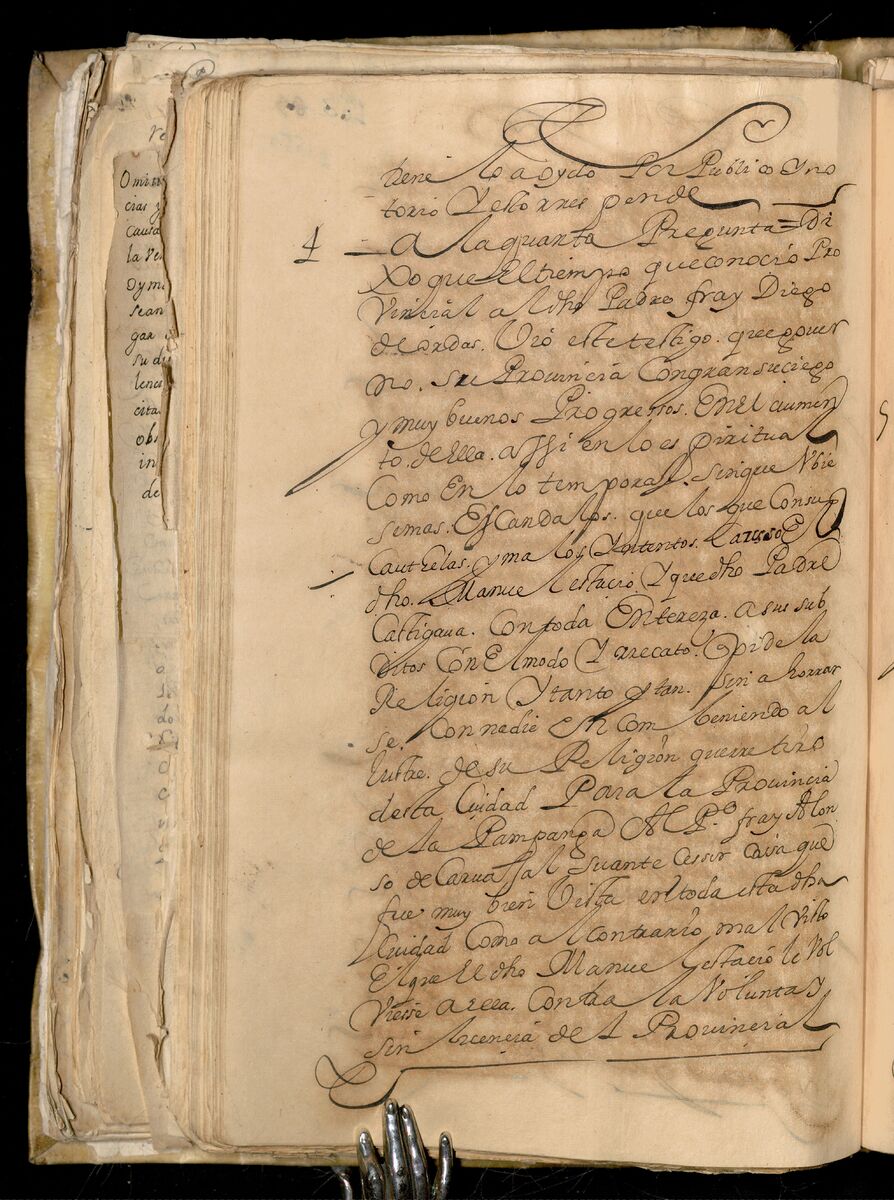 Omi
cias y
Causa
la Ve
oy m
sean
gar
su di
lenc
cita
obs
in
de
tiene lo a oydo Por Publico y no
torio Y esto rresponde
4 A la quarta Pregunta = Di
xo que El tiempo que conocio Pro
Vincial al dho Padre fray Diego
de ordas. Vio este testigo. que gouer
no. su Prouincia Con gran suciego
y muy buenos Progressos. En El aumen
to. de ella. assi en lo espiritual
Como En lo temporal. sin que Vbie
se mas. Escandalos. que los que Con su
Cauthelas. y malos Yntentos. Causso El
dho. Manuel estacio Y que dho Padre
Castigaua. Con toda Entereza. a sus sub
ditos Con El modo Y rrecato. Q pide la
Religion Y tanto y tan. sin a horrar
se. Con nadie En Com beniendo al
lustre. de su Religion que rretiro
desta Ciudad Para la Prouincia
de la Pampanga Al Pe fray Alon
so de Caruajal su antecessor cossa que
fue muy bien Vista en toda esta dha
Ciudad Como al contrario mal Visto
El que El dho Manuel estacio le Vol
Viesse a ella. Contra la Volunta y
sin licencia del Prouincial